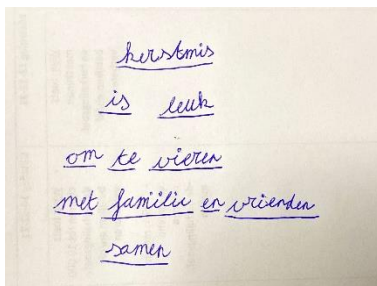 kerstmis
is leuk
om te vieren
met familie en vrienden
samen